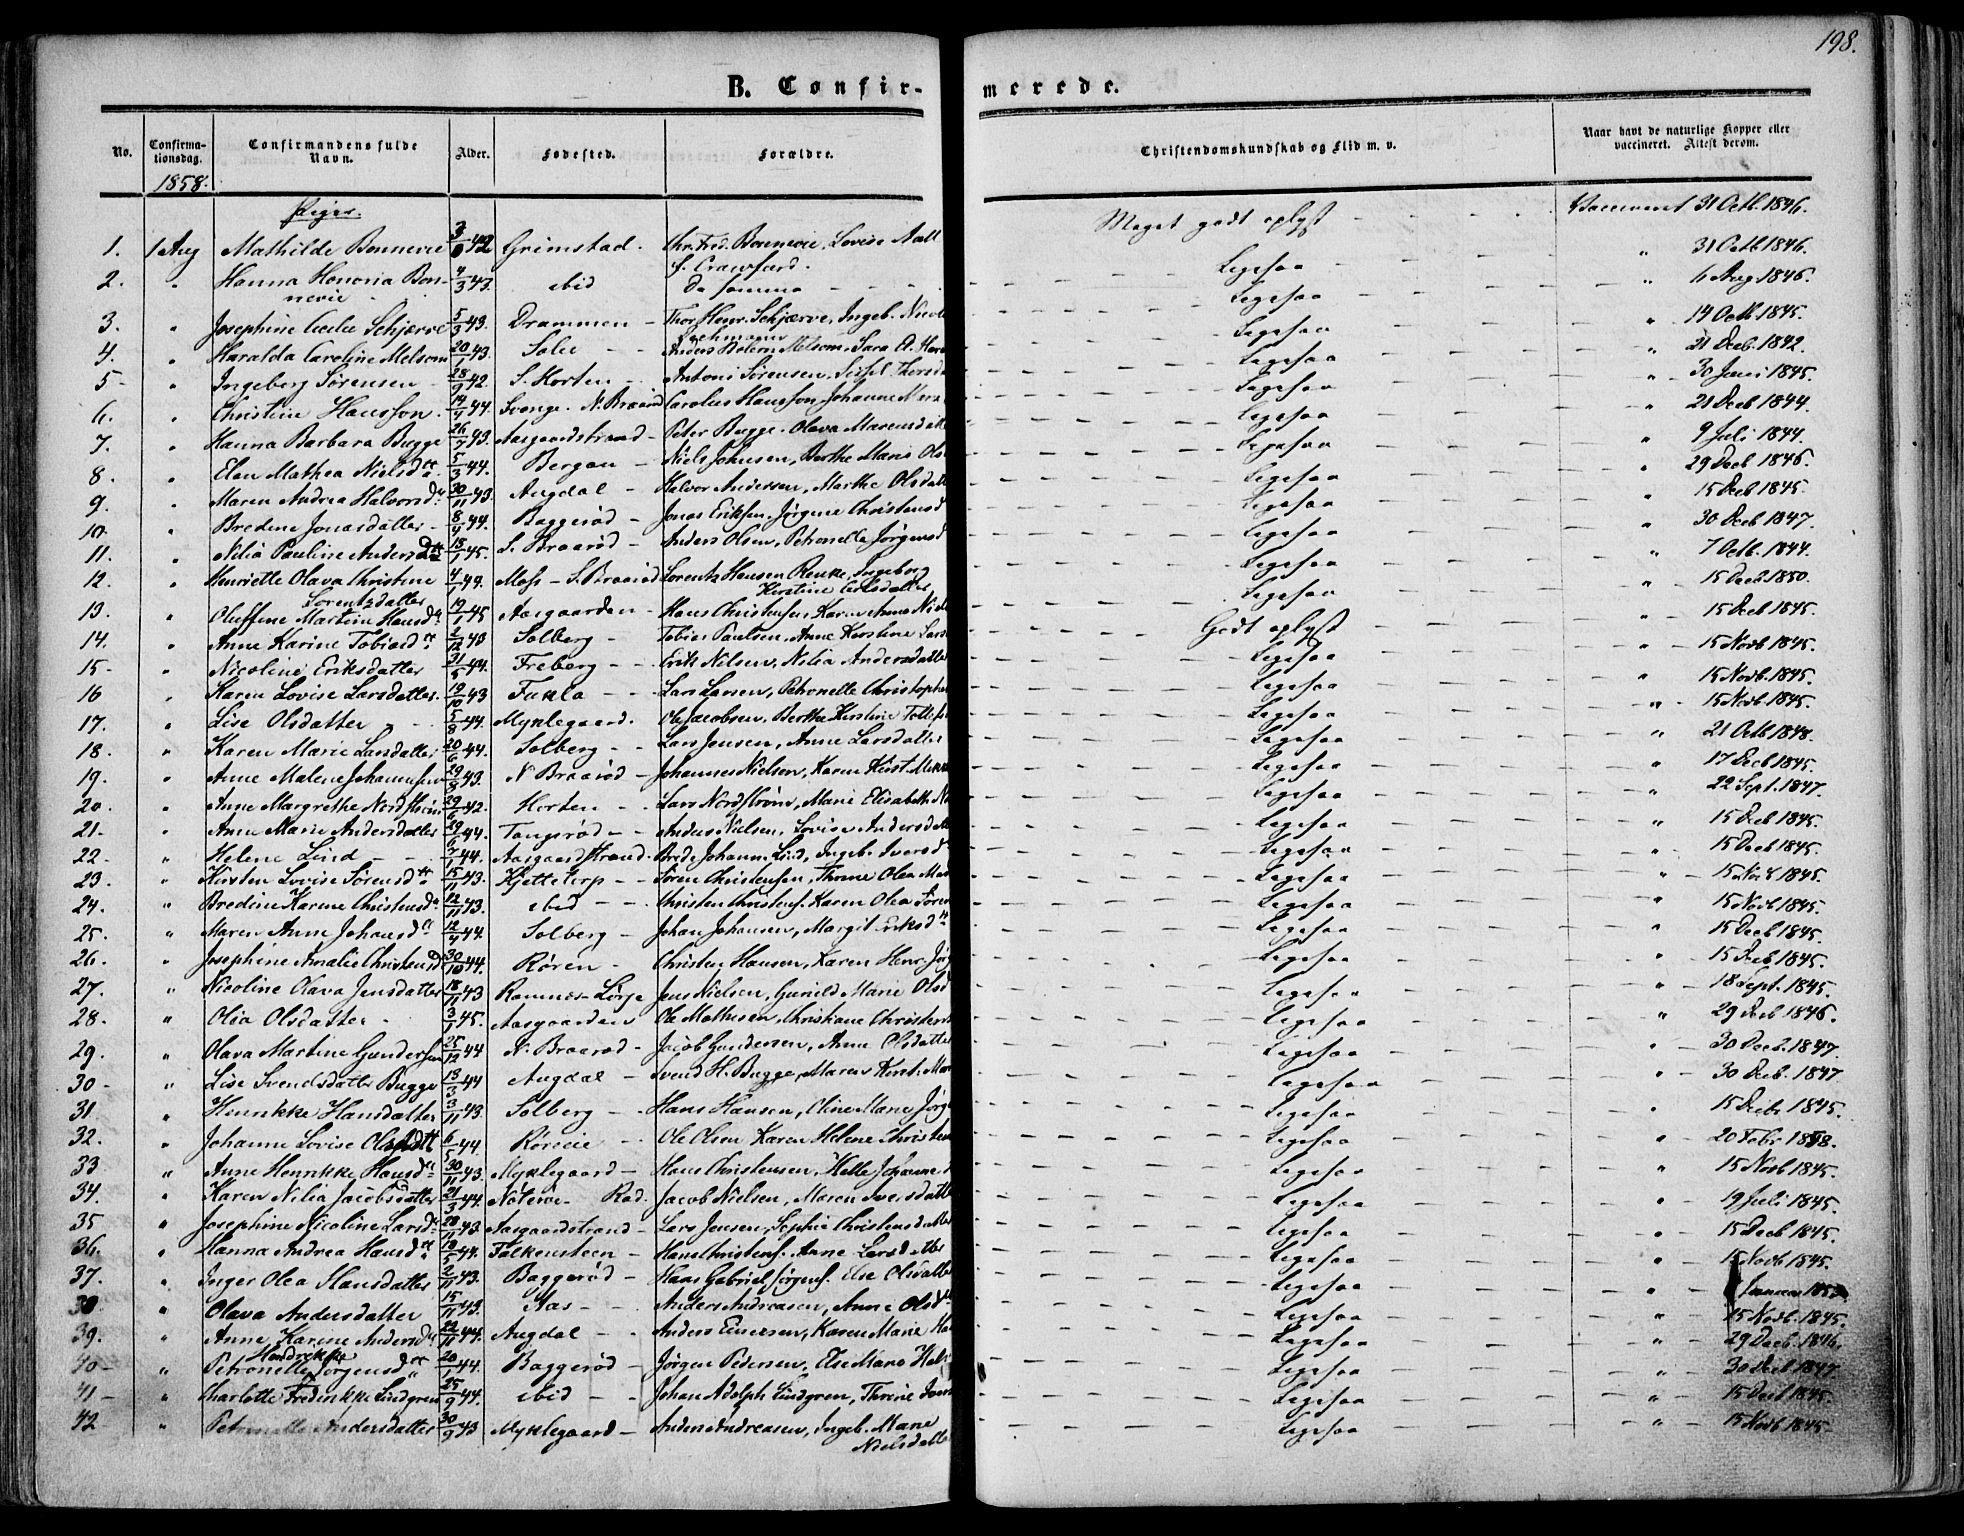 198.
B. Confirmerede.
No. Confirmationsdag. Confirmandens fulde Navn. Alder. Fødested. Forældre. Christendomskundskab og Flid m. v. Naar havt de naturlige Kopper eller vaccineret. Attest derom.
1858.
Piger.
1. 1 Aug Mathilde Bonnevie 42 Grimstad. Chr. Fred. Bonnevie, Lovise Aall f. Crawfurd. Meget godt oplyst Vaccineret 31 Octb. 1846.
2. " Hanna Honoria Bonnevie 4/3 43. ibid de samme Ligesaa " 31 Octb 1846.
3. " Josephine Cecilie Schjerve 5/3 43. Drammen Thor Henr. Schjerve, Ingeb. Ligesaa " 6 Aug 1846.
4. " Haralda Caroline Melsom 20/1 43. Anders Melsom, Sara Ligesaa " 14 Octb. 1845.
5 " Ingeborg Sørensen 28/9 42. S. Horten Antoni Sørensen, Ligesaa " 21 Decb. 1842.
6. " Christine Hansson 14/4 44. N. Braarød Carolius Hansson, Johanne Ligesaa " 30 Juni 1845.
7. " Hanna Barbara Bugge 26/7 43. Aasgaardstrand Peter Bugge, Olava Ligesaa " 21 Decb 1844.
8 " Elen Mathea Nielsdtr 5/3 44. Bergan Niels Johnsen, Berthe Marie Ligesaa " 9 Juli 1844.
9. " Maren Andrea Halvorsdr 30/11 43. Augdal Halvor Andersen, Marthe Ligesaa " 29 Decb 1846.
10. " Bredine Jonasdatter 8/4 44. Baggerød Jonas Eriksen, Jørgine Ligesaa " 15 Decb 1845.
11. " Nilia Pauline Andersdtr 18/1 45. S. Braarød Anders Olsen, Petronelle Ligesaa " 30 Decb. 1847.
12. " Henriette Olava Christine Lorentzdatter 4/1 44. Moss - S. Braarød Lorentz Hansen, Ingeborg Kirstine Ligesaa " 7 Octb. 1844.
13. " Oluffine Martine Hansdr 19/1 45 Aasgaarden Hans Christensen, Karen Anne Ligesaa " 15 Decb 1850.
14. " Anne Karine Tobiasdr 2/12 43 Solberg Tobias Paulsen, Anne Kirstine Godt oplyst " 15 Decb 1845.
15 " Nicoline Eriksdatter 31/5 44. Freberg Erik Nilsen, Nilia Andersdatter Ligesaa " 15 Novb 1845.
16 " Karen Lovise Larsdatter. 19/10 43 Lars Larsen, Petronelle Ligesaa " 15 Novb. 1845.
17. " Lise Olsdatter 5/8 44. Myklegaard. Ole Jacobsen, Berthe Kirstine Ligesaa " 15 Novb 1845.
18. " Karen Marie Larsdatter 20/6 44. Solberg Lars Jensen, Anne Larsdatter Ligesaa " 21 Octb 1848.
19. " Anne Malene Johannesen 29/8 43. N. Braarød Johannes Nielsen, Karen Ligesaa " 17 Decb 1845.
20. " Anne Margrethe 29/6 42. Horten Lars Nordstrøm, Marie Elisabeth Ligesaa " 22 Sept. 1847.
21. " Anne Marie Andersdatter 29/6 44. Tangerød Anders Nielsen, Lovise Ligesaa " 15 Decb 1845.
22. " Helene Lind 7/1 44. Aasgaardstrand. Brede Johann. Lind, Ingeb. Iversd Ligesaa " 15 Decb 1845.
23. " Kirsten Lovise Sørensdtr 15/11 43. Søren Christensen, Thrine Olea Ligesaa " 15 Novb 1845.
24. " Bredine Karine Christensdr 12/11 43. ibid Christen Christens. Karen Olea Ligesaa " 15 Novb 1845.
25. " Maren Anne Johansdr 12/4 44. Solberg Johan Johansen, Margit Eriksdtr Ligesaa " 15 Decb 1845.
26. " Josephine Amalie Christensd 30/10 44. Røren Christen Hansen, Karen Henr. Ligesaa " 15 Decb. 1845.
27. " Nicoline Olava Jensdatter 18/11 43 Ramnes Jens Nielsen, Gunild Marie Ligesaa " 18 Sept. 1845.
28. " Olia Olsdatter 3/1 45. Aasgaarden Ole Mathisen, Christiane Ligesaa " 29 Decb 1846.
29. " Olava Martine Gundersen 25/12 44 N. Braarød Jacob Gundersen, Anne Olsdatter Ligesaa " 30 Decb. 1847.
30 " Lise Svendsdatter Bugge 13/3 44 Augdal Svend H. Bugge, Maren Kirst. Ligesaa " 30 Decb. 1847
31. " Henrikke Hansdatter 3/11 43. Solberg Hans Hansen, Oline Marie Ligesaa " 15 Decbr 1845.
32. " Johanne Lovise 6/5 44. Røreie Ole Olsen Karen Helene Ligesaa " 20 Febr 1858.
33 " Anne Henrikke Hansdr 30/11 43 Myklegaard Hans Christensen, Helle Johanne Ligesaa " 15 Novb 1845.
34. " Karen Nilia Jacobsdatter 21/3 44. Nøterøe Jacob Nielsen, Maren Iversdatter Ligesaa " 19 Juli 1845.
35 " Josephine Nicoline Larsdr 28/11 43 Aasgaardstrand Lars Jensen, Sophie Christensdatter Ligesaa " 15 Decb 1845.
36. " Hanna Andrea Hansdtr 19/5 44. Falkensteen Hans Christens. Anne Larsdatter Ligesaa " 15 Novb 1845.
37. " Inger Olea Hansdatter 2/11 43. Baggerød Hans Gabriel Jørgens. Else Olsdatter Ligesaa " Januar
38. " Olava Andersdatter 15/11 43. Aas Anders Andreasen, Anne Olsdtr Ligesaa " 15 Novb. 1845.
39. " Anne Karine Andersdr 22/11 44. Augdal Anders Einersen, Karen Marie Ligesaa " 29 Decb. 1846.
40 " Petronelle Hendrikke Jørgensdtr 20/1 44. Baggerød Jørgen Pedersen, Else Marie Ligesaa " 30 Decb 1847.
41 " Charlotte Fredrikke Lindgren 25/9 44. ibid Johan Adolph Lindgren, Thrine Ligesaa " 15 Decb 1845.
42 " Petronelle Andersdatter 30/9 43 Myklegaard Anders Andreasen, Ingeb. Marie Nielsdatter Ligesaa " 15 Novb 1845